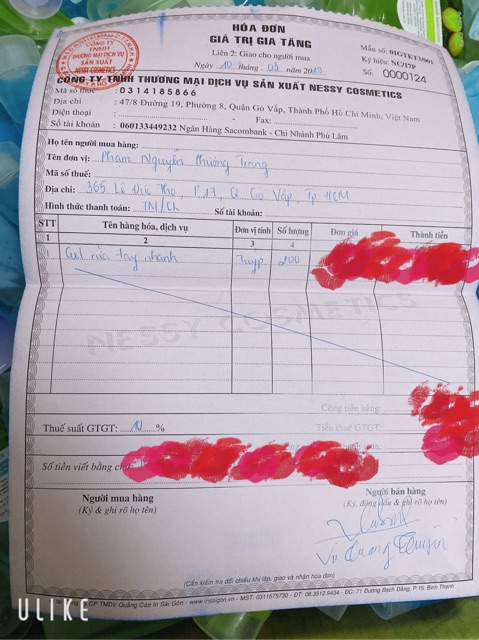 HÓA ĐƠN
GIÁ TRỊ GIA TĂNG
Liên 2: Giao cho người mua
Ngày 10 tháng 03 năm 2020
Mẫu số: 01GTKT3/001
Ký hiệu: NC/17P
Số: 0000124
CÔNG TY TNHH THƯƠNG MẠI DỊCH VỤ SẢN XUẤT NESSY COSMETICS
CÔNG TY
TNHH
THƯƠNG MẠI DỊCH VỤ
SẢN XUẤT
NESSY COSMETICS
Mã số thuế : 0314185866
Địa chỉ : 47/8 Đường 19, Phường 8, Quận Gò Vấp, Thành Phố Hồ Chí Minh, Việt Nam
Điện thoại : - Fax:
Số tài khoản : 060133449232 Ngân Hàng Sacombank - Chi Nhánh Phú Lâm
Họ tên người mua hàng:
Tên đơn vị: Phạm Nguyễn Phương Trang
Mã số thuế:
Địa chỉ: 365 Lê Đức Thọ, P.17, Q Gò Vấp, Tp HCM
Hình thức thanh toán: TM/CK Số tài khoản:
STT Tên hàng hóa, dịch vụ Đơn vị tính Số lượng Đơn giá Thành tiền
1 2 3 4
1 Gel rửa tay nhanh Tuýp 200
NESSY COSMETICS
Cộng tiền hàng:
Thuế suất GTGT: 10 % Tiền thuế GTGT:
Số tiền viết bằng
Người mua hàng
(Ký & ghi rõ họ tên)
Người bán hàng
(Ký, đóng dấu & ghi rõ họ tên)
Vũ Quang
(Cần kiểm tra đối chiếu khi lập, giao và nhận hóa đơn)
CP TMDV Quảng Cáo In Sài Gòn - www.insaigon.vn - MST: 0311575730 - ĐT: 08.3512.9434 - ĐC: 71 Đường Bạch Đằng, P.15, Bình Thạnh
ULIKE